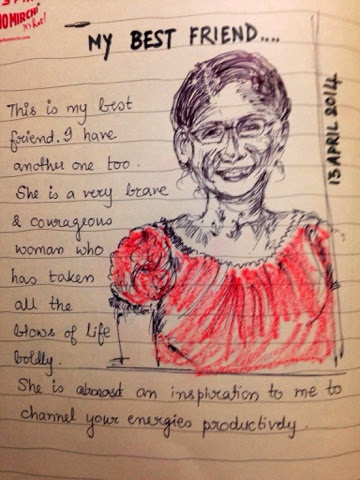 MIRCHI
It's hot!
MY BEST FRIEND....
13 APRIL 2014
This is my best
friend. I have
another one too.
She is a very brave
& courageous
woman who
has taken
all the
blows of life
boldly.
She is an inspiration to me to
channel your energies productively.